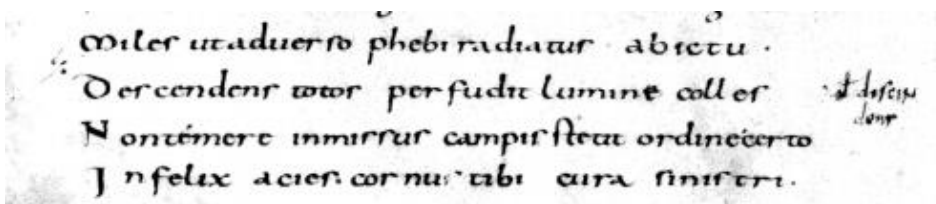 Miles ut aduerso phebi radiatur ab ictu.
Descendens totos perfudit lumine colles
Non temere inmissus campis stetit ordine certo
Infelix acies. cornus tibi cura sinistri.